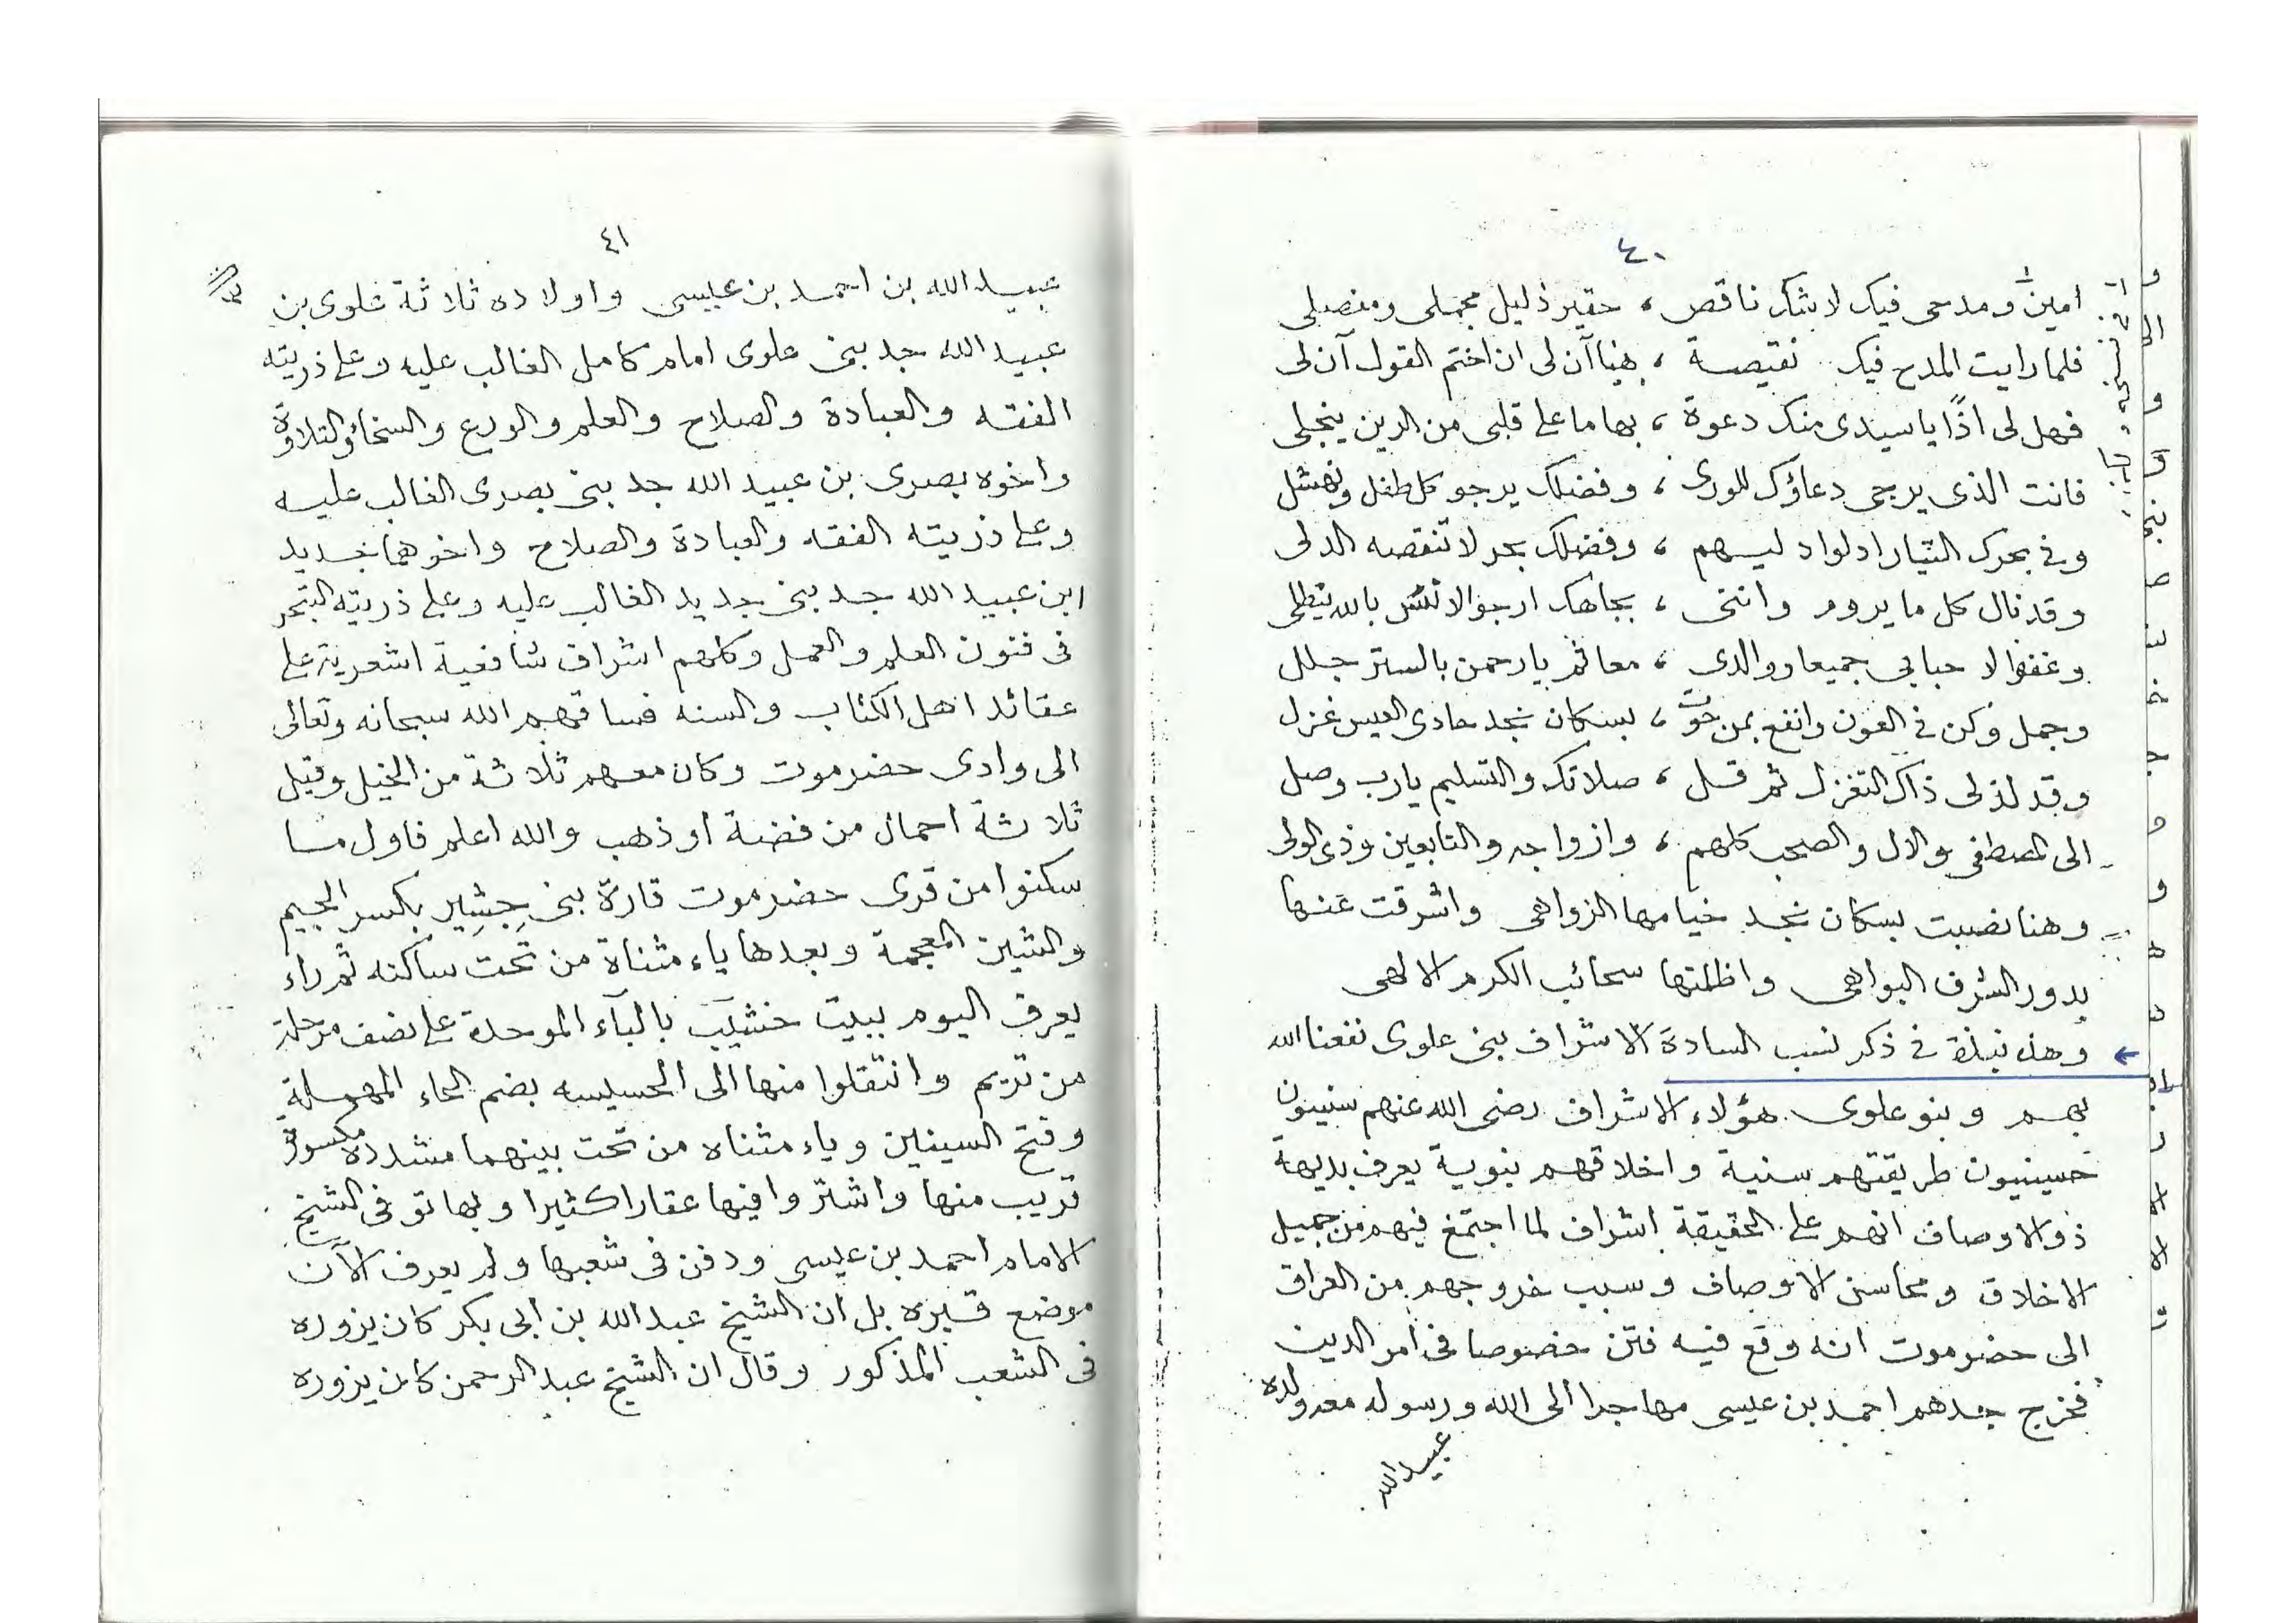 ٤٠
امين ومدحى فيك لا شك ناقص ، حقير ذليل مجملى ومفصلى
فلما رايت المدح فيك نقيصة ، هنا آن لى ان اختم القول آن لى
فهل لى اذًا يا سيدى منك دعوة ، بها ما على قلبى من الرين ينجلى
فانت الذى يرجى دعاؤك للورى ، وفضلك يرجو كل طفل ونهشل
وفى بحرك التيار ادلواد ليسهم ، وفضلك بحر لا تنقصه الدلى
وقد نال كل ما يروم وانثنى ، بجاهك ارجو الا بالله
وغفوا لاحبابى جميعا ووالدى ، معا ثم يا رحمن بالستر جلل
وجمل وكن فى العون وانفع بمن حوت ، بسكان نجد حادى العيس غزل
وقد لذ لى ذاك التغزل ثم قسل ، صلاتك والتسليم يا رب وصل
الى المصطفى والال والصحب كلهم ، وازواجه والتابعين وذى الولى
وهنا نصبت بسكان نجد خيامها الزواهى واشرقت عنها
بدور الشرف البواهى واظلتها سحائب الكرم الالهى
وهذه نبذة فى ذكر نسب السادة الاشراف بنى علوى نفعنا الله
بهم وبنو علوى هؤلاء الاشراف رضى الله عنهم سنيون
حسينيون طريقتهم سنية واخلاقهم نبوية يعرف بديهة
ذو الاوصاف انهم على الحقيقة اشراف لما اجتمع فيهم من جميل
الاخلاق ومحاسن الاوصاف وسبب خروجهم من العراق
الى حضرموت انه وقع فيه فتن خصوصا فى امر الدين
فخرج جدهم احمد بن عيسى مهاجرا الى الله ورسوله معه ولده
عبيد الله
٤١
عبيد الله بن احمد بن عيسى واولاده ثلاثة علوى بن
عبيد الله جد بنى علوى امام كامل الغالب عليه وعلى ذريته
الفقه والعبادة والصلاح والعلم والورع والسخاء والتلاوة
واخوه بصرى بن عبيد الله جد بنى بصرى الغالب عليه
وعلى ذريته الفقه والعبادة والصلاح واخوهما جديد
ابن عبيد الله جد بنى جديد الغالب عليه وعلى ذريته التبحر
فى فنون العلم والعمل وكلهم اشراف شافعية اشعرية على
عقائد اهل الكتاب والسنه فساقهم الله سبحانه وتعالى
الى وادى حضرموت وكان معهم ثلاثة من الخيل وقيل
ثلاثة احمال من فضة او ذهب والله اعلم فاول ما
سكنوا من قرى حضرموت قارة بنى جِشِير بكسر الجيم
والشين المعجمة وبعدها ياء مثناة من تحت ساكنه ثم راء
يعرف اليوم ببيت خشيب بالبآء الموحدة على نصف مرحلة
من تريم وانتقلوا منها الى الحسيسه بضم الحاء المهملة
وفتح السينين وياء مثناه من تحت بينهما مشددة مكسورة
قريب منها واشتروا فيها عقارا كثيرا وبها توفى الشيخ
الامام احمد بن عيسى ودفن فى شعبها ولم يعرف الآن
موضع قبره بل ان الشيخ عبد الله بن ابى بكر كان يزوره
فى الشعب المذكور وقال ان الشيخ عبد الرحمن كان يزوره